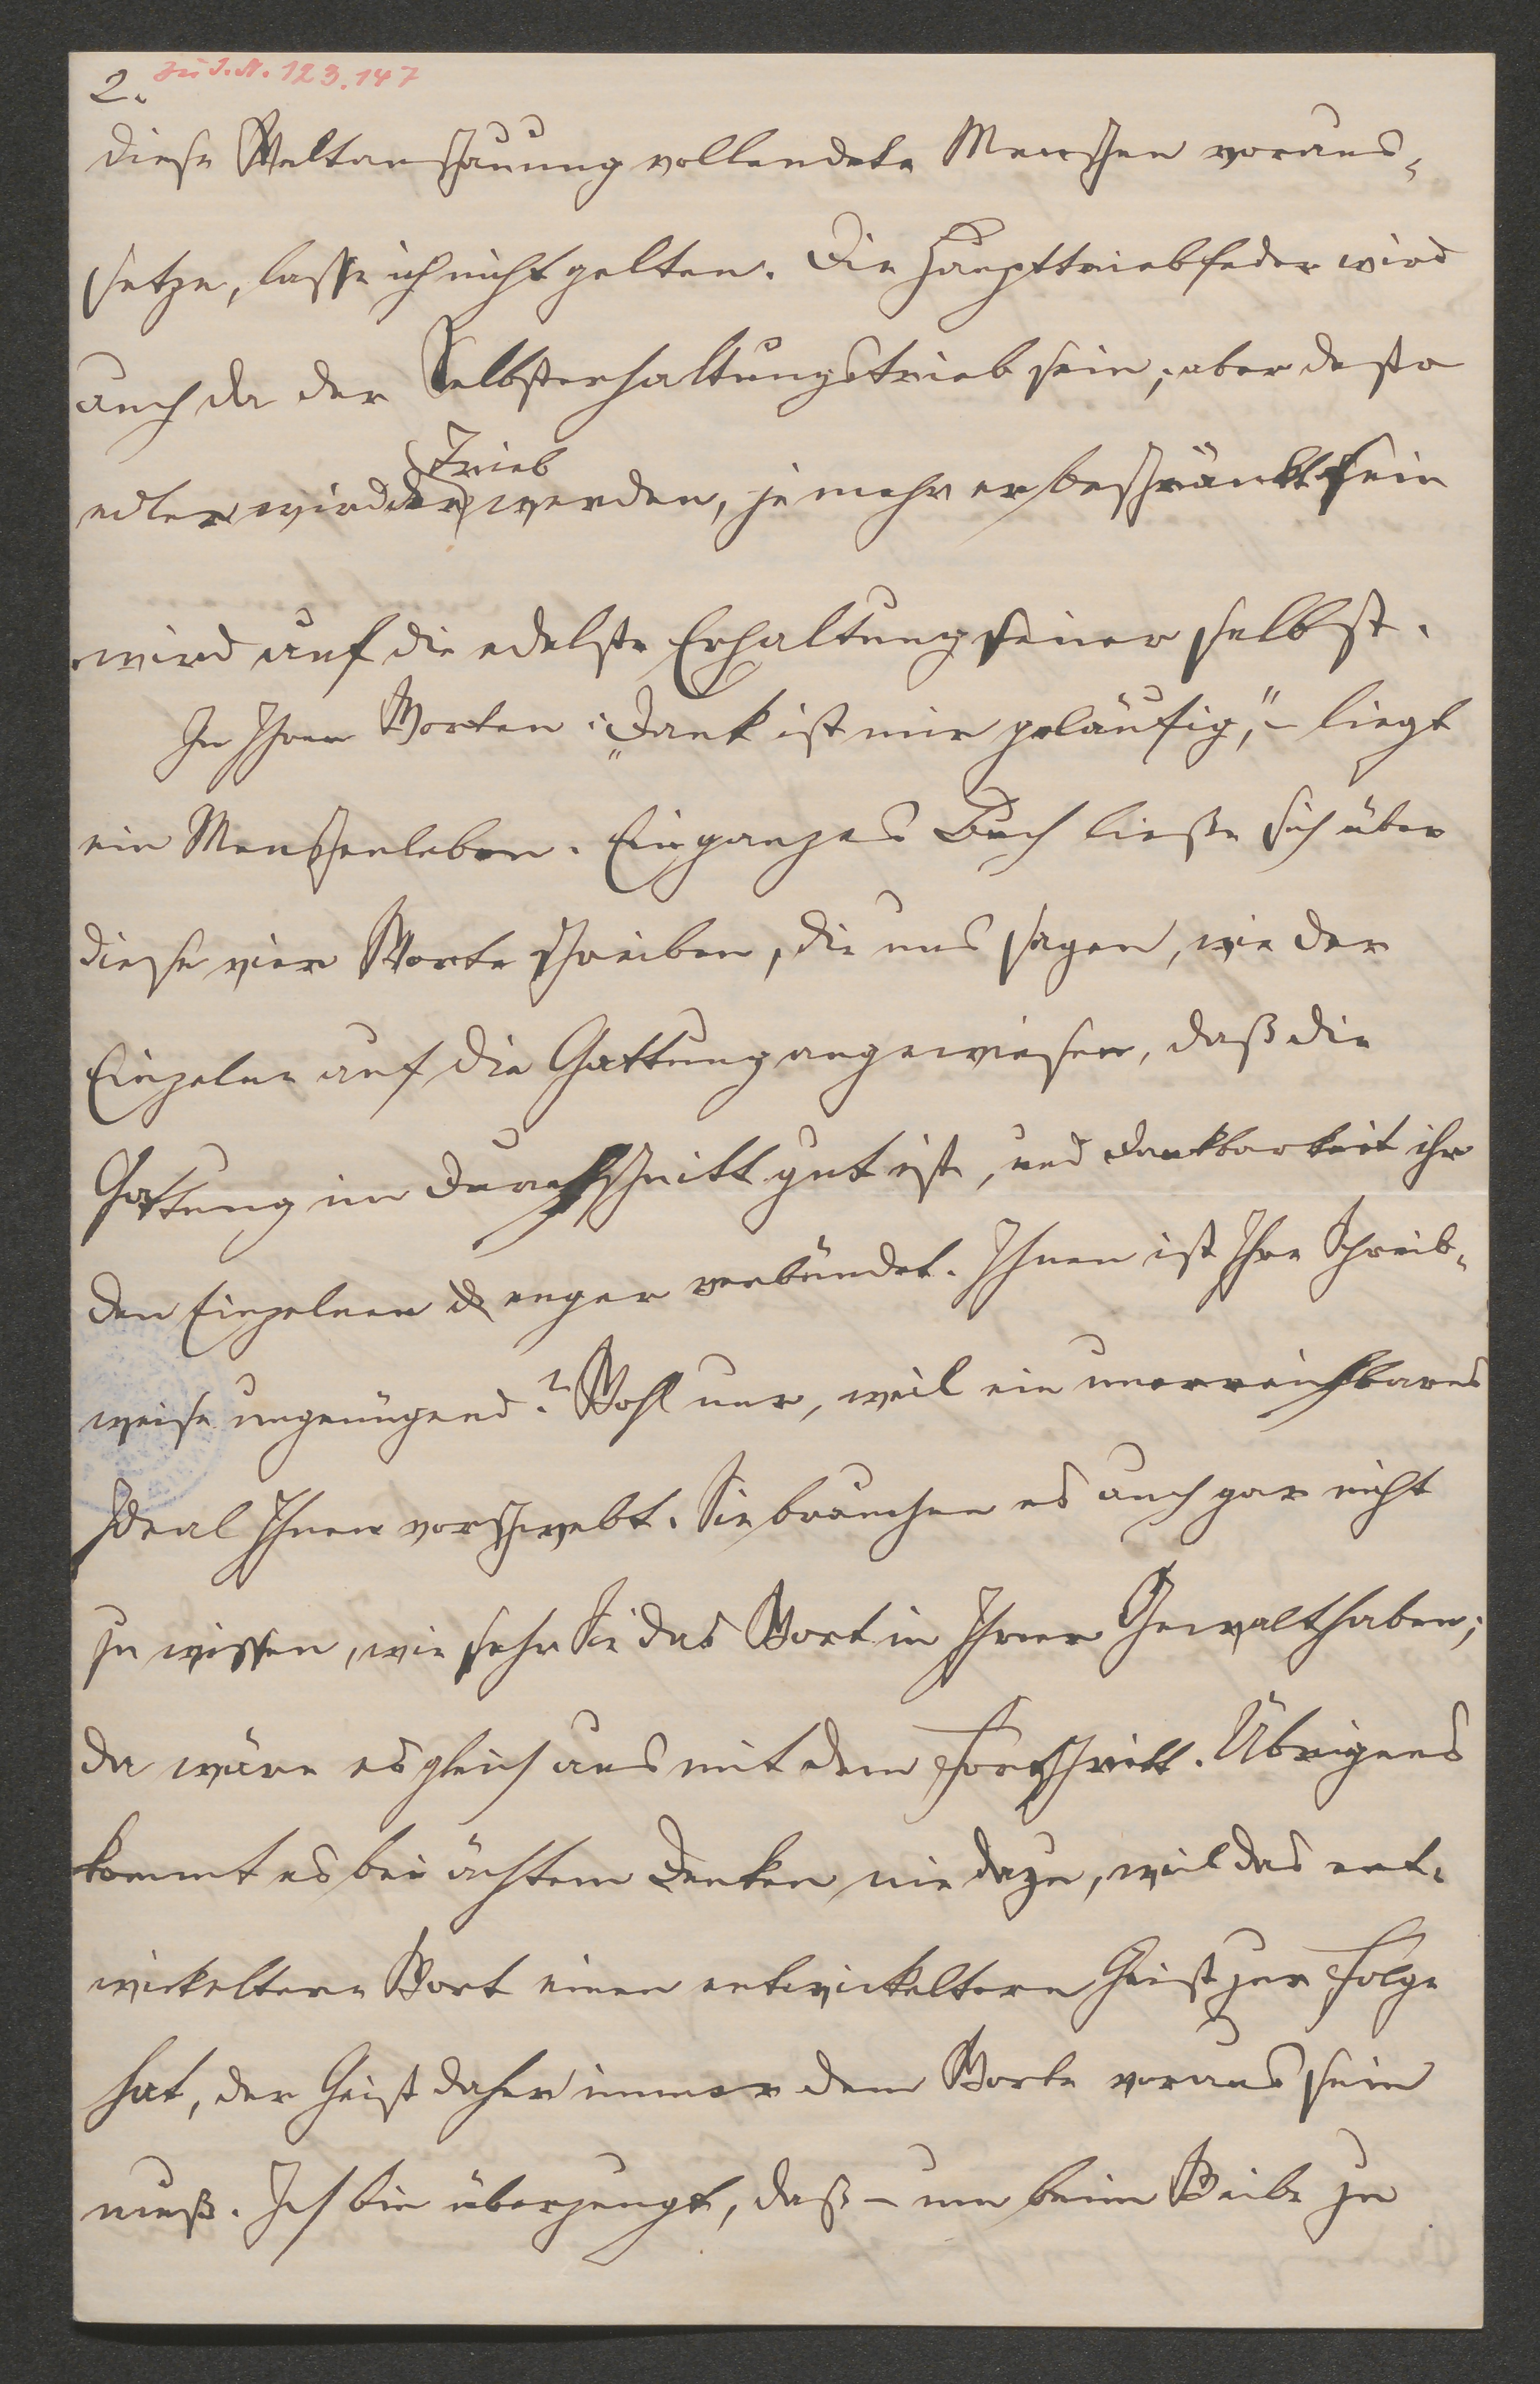 2.
zu I.N. 123.147
diese Weltanschauung vollendete Menschen voraus-
setze, lasse ich nicht gelten. Die Haupttriebfeder wird
auch da der Selbsterhaltungstrieb sein; aber desto
Trieb
edler wird der werden, je mehr er beschränkt sein
wird auf die edelste Erhaltung seiner selbst.
In Ihren Worten: „Dank ist mir geläufig," – liegt
ein Menschenleben. Ein ganzes Buch ließe sich über
diese vier Worte schreiben, die uns sagen, wie der
Einzelne auf die Gattung angewiesen, daß die
Gattung im Durchschnitt gut ist, und Dankbarkeit ihr
den Einzelnen enger verbündet. Ihnen ist Ihre Schreib-
weise ungenügend? Wohl nur, weil ein unerreichbares
Ideal Ihnen vorschwebt. Sie brauchen es auch gar nicht
zu wissen, wie sehr Sie das Wort in Ihrer Gewalt haben;
da wäre es gleich aus mit dem Fortschritt. Übrigens
kommt es bei ächtem Denken nie dazu, weil das ent-
wickeltere Wort einen entwickeltern Geist zur Folge
hat, der Geist daher immer dem Worte voraus sein
muß. Ich bin überzeugt, daß – um beim Weibe zu